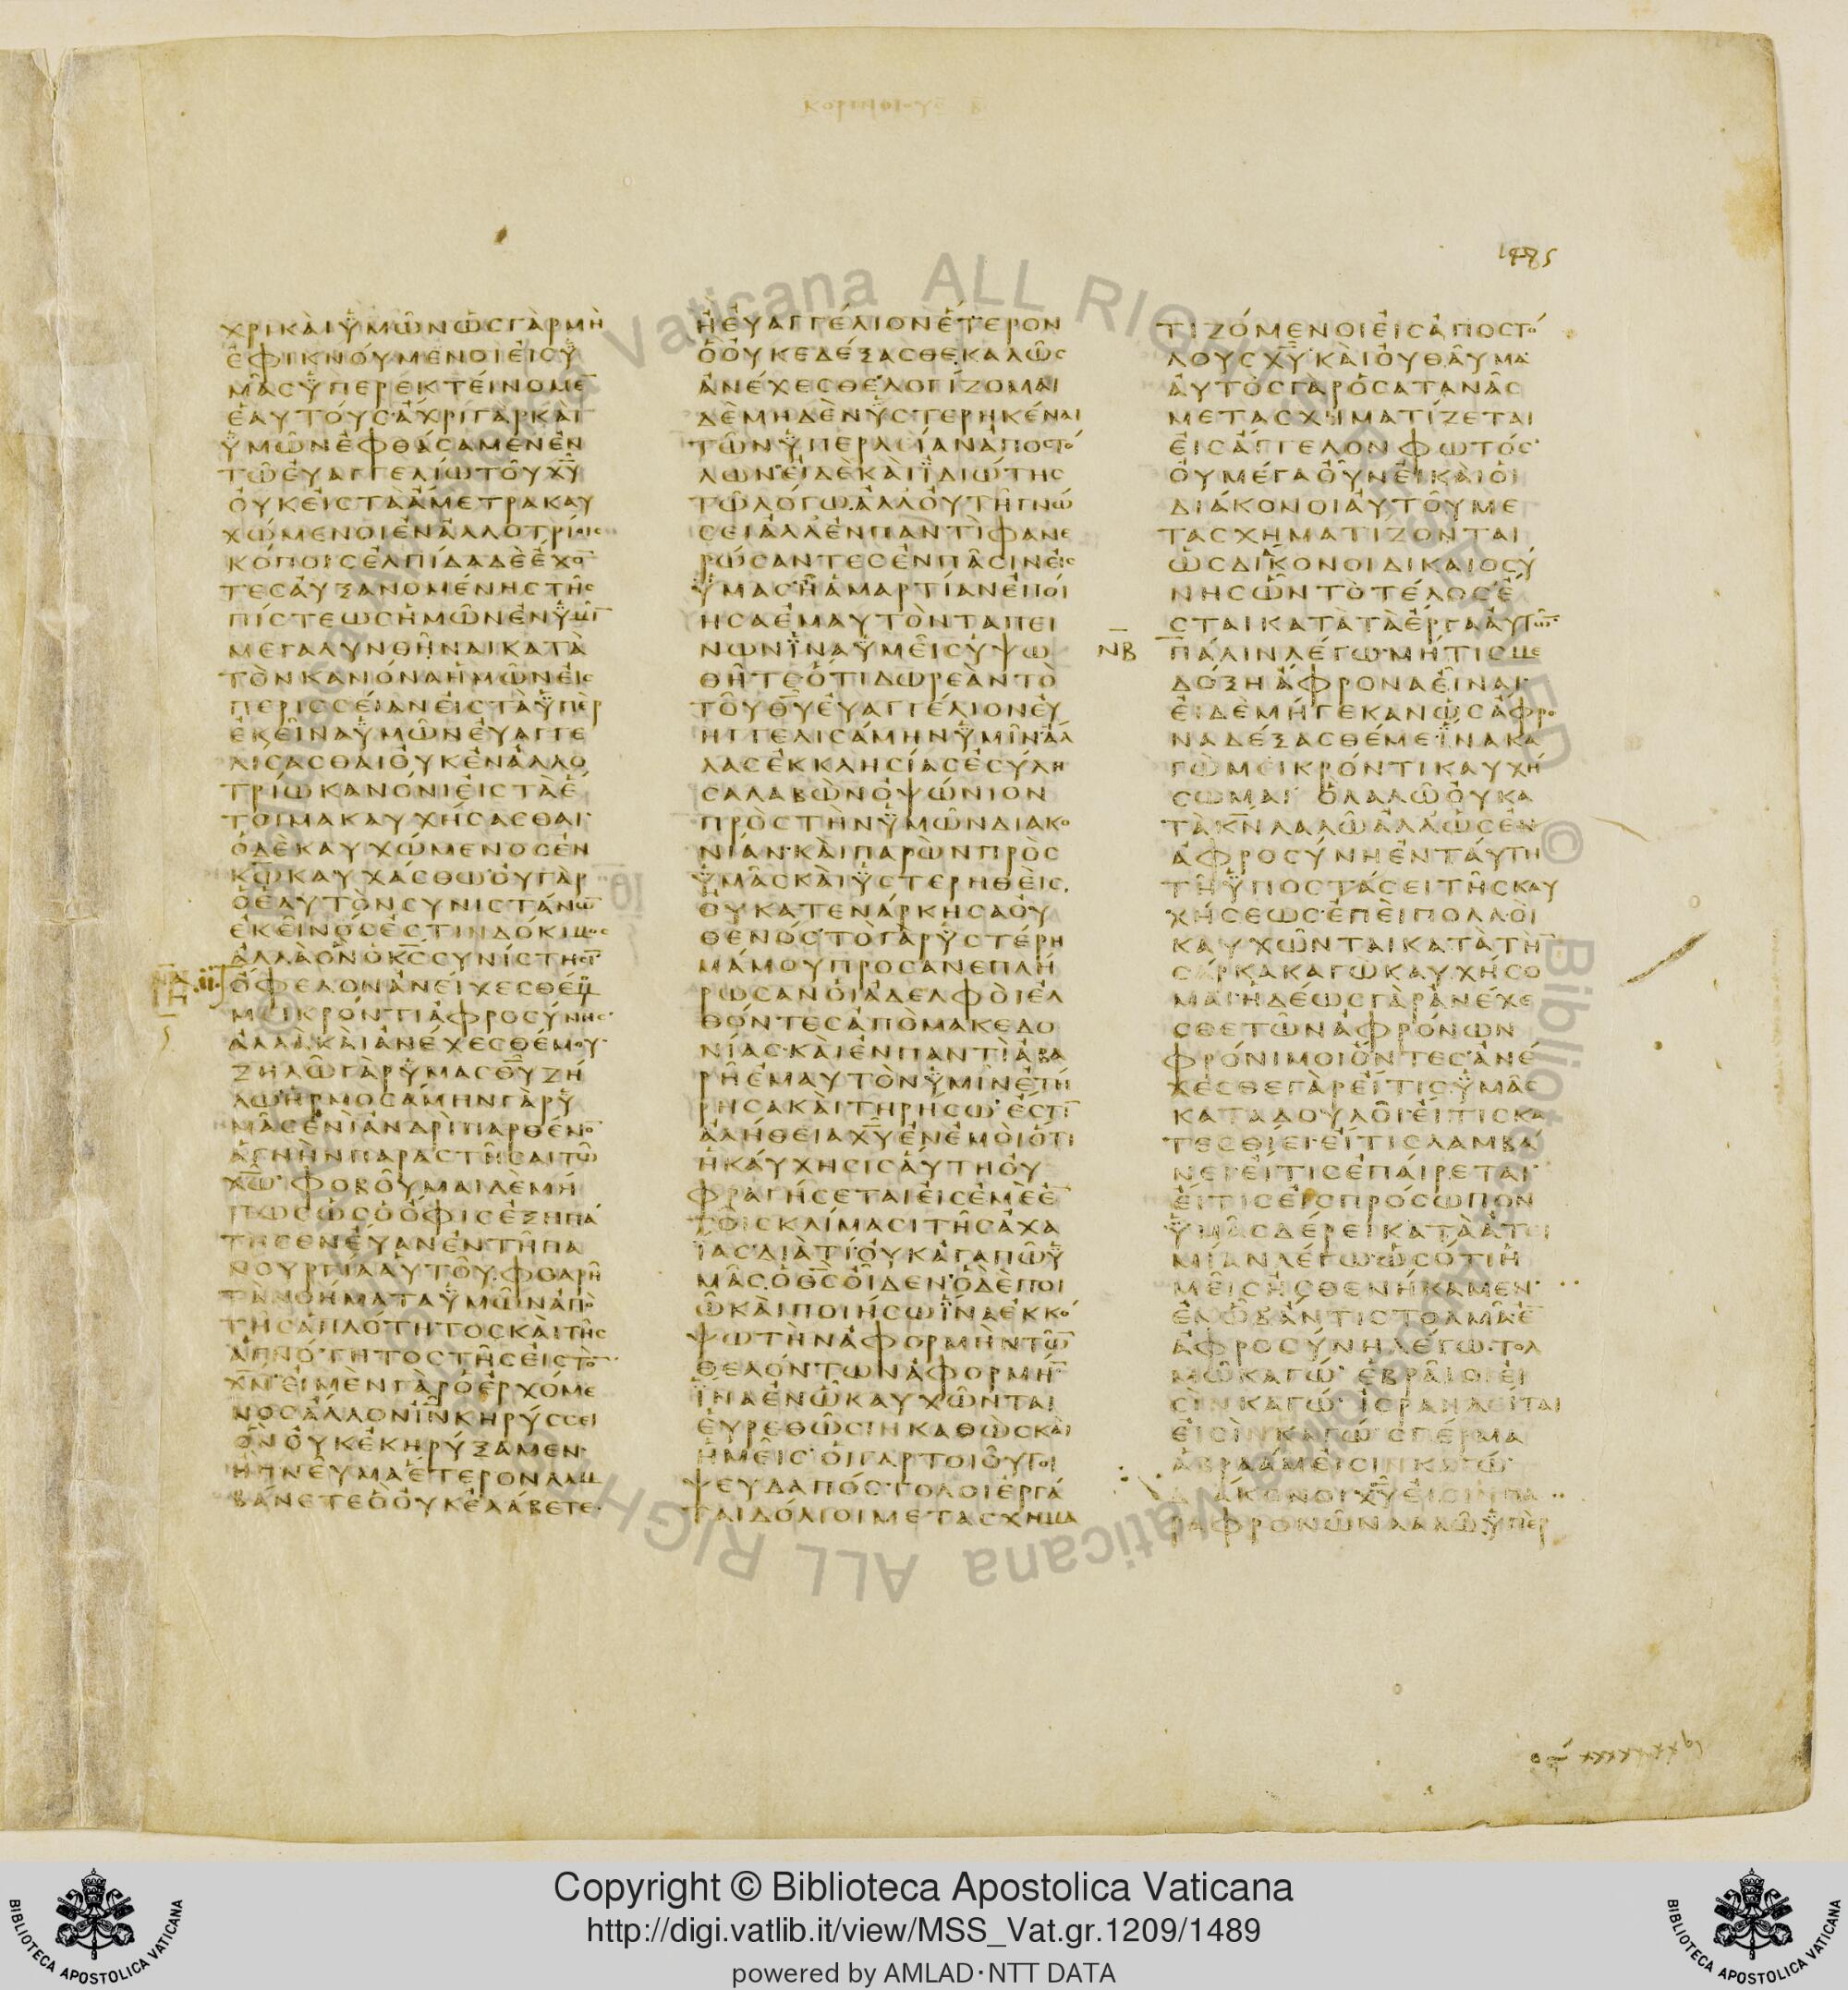 ΚΟΡΙΝΘΙΟΥΣ Β
1485
ΧΡΙΚΑΙΫΜΩΝΩΣΓΑΡΜΗ
ΕΦΙΚΝΟΥΜΕΝΟΙΕΙΣΫ
ΜΑΣΫΠΕΡΕΚΤΕΙΝΟΜΕ̅
ΕΑΥΤΟΥΣΑΧΡΙΓΑΡΚΑΙ
ΫΜΩΝΕΦΘΑΣΑΜΕΝΕΝ
ΤΩΕΥΑΓΓΕΛΙΩΤΟΥΧ̅Υ̅
ΟΥΚΕΙΣΤΑΑΜΕΤΡΑΚΑΥ
ΧΩΜΕΝΟΙΕΝΑΛΛΟΤΡΙΟΙΣ
ΚΟΠΟΙΣΕΛΠΙΔΑΔΕΕΧΟ̅
ΤΕΣΑΥΞΑΝΟΜΕΝΗΣΤΗΣ
ΠΙΣΤΕΩΣΗΜΩΝΕΝΫΜΙ̅
ΜΕΓΑΛΥΝΘΗΝΑΙΚΑΤΑ
ΤΟΝΚΑΝΟΝΑΗΜΩΝΕΙΣ
ΠΕΡΙΣΣΕΙΑΝΕΙΣΤΑΫΠΕΡ
ΕΚΕΙΝΑΫΜΩΝΕΥΑΓΓΕ
ΛΙΣΑΣΘΑΙΟΥΚΕΝΑΛΛΟ
ΤΡΙΩΚΑΝΟΝΙΕΙΣΤΑΕ
ΤΟΙΜΑΚΑΥΧΗΣΑΣΘΑΙ·
ΟΔΕΚΑΥΧΩΜΕΝΟΣΕΝ
Κ̅Ω̅ΚΑΥΧΑΣΘΩΟΥΓΑΡ
ΟΕΑΥΤΟΝΣΥΝΙΣΤΑΝΩ̅
ΕΚΕΙΝΟΣΕΣΤΙΝΔΟΚΙΜΟΣ
ΑΛΛΑΟΝΟΚ̅Σ̅ΣΥΝΙΣΤΗΣΙ̅
ΟΦΕΛΟΝΑΝΕΙΧΕΣΘΕΜΟΥ
ΜΕΙΚΡΟΝΤΙΑΦΡΟΣΥΝΗΣ·
ΑΛΛΑΚΑΙΑΝΕΧΕΣΘΕΜΟΥ·
ΖΗΛΩΓΑΡΫΜΑΣΘ̅Υ̅ΖΗ
ΛΩΗΡΜΟΣΑΜΗΝΓΑΡΫ
ΜΑΣΕΝΙΑΝΔΡΙΠΑΡΘΕΝΟ̅
ΑΓΝΗΝΠΑΡΑΣΤΗΣΑΙΤΩ
Χ̅Ω̅·ΦΟΒΟΥΜΑΙΔΕΜΗ
ΠΩΣΩΣΟΟΦΙΣΕΞΗΠΑ
ΤΗΣΕΝΕΥΑΝΕΝΤΗΠΑ
ΝΟΥΡΓΙΑΑΥΤΟΥ·ΦΘΑΡΗ
ΤΑΝΟΗΜΑΤΑΫΜΩΝΑΠΟ
ΤΗΣΑΠΛΟΤΗΤΟΣΚΑΙΤΗΣ
ΑΓΝΟΤΗΤΟΣΤΗΣΕΙΣΤΟ̅
Χ̅Ν̅·ΕΙΜΕΝΓΑΡΟΕΡΧΟΜΕ
ΝΟΣΑΛΛΟΝΙ̅Ν̅ΚΗΡΥΣΣΕΙ
ΟΝΟΥΚΕΚΗΡΥΞΑΜΕΝ·
ΗΠΝΕΥΜΑΕΤΕΡΟΝΛΑΜ
ΒΑΝΕΤΕΟΟΥΚΕΛΑΒΕΤΕ·
ΗΕΥΑΓΓΕΛΙΟΝΕΤΕΡΟΝ
ΟΟΥΚΕΔΕΞΑΣΘΕΚΑΛΩΣ
ΑΝΕΧΕΣΘΕ·ΛΟΓΙΖΟΜΑΙ
ΔΕΜΗΔΕΝΫΣΤΕΡΗΚΕΝΑΙ
ΤΩΝΫΠΕΡΛΕΙΑΝΑΠΟΣΤΟ
ΛΩΝ·ΕΙΔΕΚΑΙΪΔΙΩΤΗΣ
ΤΩΛΟΓΩ·ΑΛΛΟΥΤΗΓΝΩ
ΣΕΙΑΛΛΕΝΠΑΝΤΙΦΑΝΕ
ΡΩΣΑΝΤΕΣΕΝΠΑΣΙΝΕΙΣ
ΫΜΑΣ·ΗΑΜΑΡΤΙΑΝΕΠΟΙ
ΗΣΑΕΜΑΥΤΟΝΤΑΠΕΙ
ΝΩΝΪΝΑΫΜΕΙΣΥΨΩ
ΘΗΤΕΟΤΙΔΩΡΕΑΝΤΟ
ΤΟΥΘ̅Υ̅ΕΥΑΓΓΕΛΙΟΝΕΥ
ΗΓΓΕΛΙΣΑΜΗΝΫΜΙΝ·ΑΛ
ΛΑΣΕΚΚΛΗΣΙΑΣΕΣΥΛΗ
ΣΑΛΑΒΩΝΟΨΩΝΙΟΝ
ΠΡΟΣΤΗΝΫΜΩΝΔΙΑΚΟ
ΝΙΑΝ·ΚΑΙΠΑΡΩΝΠΡΟΣ
ΫΜΑΣΚΑΙΫΣΤΕΡΗΘΕΙΣ·
ΟΥΚΑΤΕΝΑΡΚΗΣΑΟΥ
ΘΕΝΟΣ·ΤΟΓΑΡΫΣΤΕΡΗ
ΜΑΜΟΥΠΡΟΣΑΝΕΠΛΗ
ΡΩΣΑΝΟΙΑΔΕΛΦΟΙΕΛ
ΘΟΝΤΕΣΑΠΟΜΑΚΕΔΟ
ΝΙΑΣ·ΚΑΙΕΝΠΑΝΤΙΑΒΑ
ΡΗΕΜΑΥΤΟΝΫΜΙΝΕΤΗ
ΡΗΣΑΚΑΙΤΗΡΗΣΩ·ΕΣΤΙ̅
ΑΛΗΘΕΙΑΧ̅Υ̅ΕΝΕΜΟΙΟΤΙ
ΗΚΑΥΧΗΣΙΣΑΥΤΗΟΥ
ΦΡΑΓΗΣΕΤΑΙΕΙΣΕΜΕΕ̅
ΤΟΙΣΚΛΙΜΑΣΙΤΗΣΑΧΑ
ΪΑΣ·ΔΙΑΤΙΟΥΚΑΓΑΠΩΫ
ΜΑΣ·ΟΘ̅Σ̅ΟΙΔΕΝ·ΟΔΕΠΟΙ
ΩΚΑΙΠΟΙΗΣΩΪΝΑΕΚΚΟ
ΨΩΤΗΝΑΦΟΡΜΗΝΤΩ̅
ΘΕΛΟΝΤΩΝΑΦΟΡΜΗ̅
ΪΝΑΕΝΩΚΑΥΧΩΝΤΑΙ
ΕΥΡΕΘΩΣΙΝΚΑΘΩΣΚΑΙ
ΗΜΕΙΣ·ΟΙΓΑΡΤΟΙΟΥΤΟΙ
ΨΕΥΔΑΠΟΣΤΟΛΟΙΕΡΓΑ
ΤΑΙΔΟΛΙΟΙΜΕΤΑΣΧΗΜΑ
ΤΙΖΟΜΕΝΟΙΕΙΣΑΠΟΣΤΟ
ΛΟΥΣΧ̅Υ̅·ΚΑΙΟΥΘΑΥΜΑ·
ΑΥΤΟΣΓΑΡΟΣΑΤΑΝΑΣ
ΜΕΤΑΣΧΗΜΑΤΙΖΕΤΑΙ
ΕΙΣΑΓΓΕΛΟΝΦΩΤΟΣ·
ΟΥΜΕΓΑΟΥΝΕΙΚΑΙΟΙ
ΔΙΑΚΟΝΟΙΑΥΤΟΥΜΕ
ΤΑΣΧΗΜΑΤΙΖΟΝΤΑΙ
ΩΣΔΙΑΚΟΝΟΙΔΙΚΑΙΟΣΥ
ΝΗΣΩΝΤΟΤΕΛΟΣΕ
ΣΤΑΙΚΑΤΑΤΑΕΡΓΑΑΥΤΩ̅·
Ν̅Β ΠΑΛΙΝΛΕΓΩ·ΜΗΤΙΣΜΕ
ΔΟΞΗΑΦΡΟΝΑΕΙΝΑΙ·
ΕΙΔΕΜΗΓΕΚΑΝΩΣΑΦΡΟ
ΝΑΔΕΞΑΣΘΕΜΕ·ΪΝΑΚΑ
ΓΩΜΕΙΚΡΟΝΤΙΚΑΥΧΗ
ΣΩΜΑΙ· ΟΛΑΛΩΟΥΚΑ
ΤΑΚ̅Ν̅ΛΑΛΩΑΛΛΩΣΕΝ
ΑΦΡΟΣΥΝΗΕΝΤΑΥΤΗ
ΤΗΫΠΟΣΤΑΣΕΙΤΗΣΚΑΥ
ΧΗΣΕΩΣ·ΕΠΕΙΠΟΛΛΟΙ
ΚΑΥΧΩΝΤΑΙΚΑΤΑΤΗ̅
ΣΑΡΚΑΚΑΓΩΚΑΥΧΗΣΟ
ΜΑΙ·ΗΔΕΩΣΓΑΡΑΝΕΧΕ
ΣΘΕΤΩΝΑΦΡΟΝΩΝ
ΦΡΟΝΙΜΟΙΟΝΤΕΣ·ΑΝΕ
ΧΕΣΘΕΓΑΡΕΙΤΙΣΫΜΑΣ
ΚΑΤΑΔΟΥΛΟΙ·ΕΙΤΙΣΚΑ
ΤΕΣΘΙΕΙ·ΕΙΤΙΣΛΑΜΒΑ
ΝΕΙ·ΕΙΤΙΣΕΠΑΙΡΕΤΑΙ·
ΕΙΤΙΣΕΙΣΠΡΟΣΩΠΟΝ
ΫΜΑΣΔΕΡΕΙΚΑΤΑΑΤΕΙ
ΜΙΑΝΛΕΓΩ·ΩΣΟΤΙΗ
ΜΕΙΣΗΣΘΕΝΗΚΑΜΕΝ·
ΕΝΩΔΑΝΤΙΣΤΟΛΜΑ·Ε̅
ΑΦΡΟΣΥΝΗΛΕΓΩ·ΤΟΛ
ΜΩΚΑΓΩ· ΕΒΡΑΙΟΙΕΙ
ΣΙΝΚΑΓΩ· ΙΣΡΑΗΛΕΙΤΑΙ
ΕΙΣΙΝΚΑΓΩ·ΣΠΕΡΜΑ
ΑΒΡΑΑΜΕΙΣΙΝΚΑΓΩ·
ΔΙΑΚΟΝΟΙΧ̅Υ̅ΕΙΣΙΝΠΑ
ΡΑΦΡΟΝΩΝΛΑΛΩΫΠΕΡ
Copyright © Biblioteca Apostolica Vaticana
http://digi.vatlib.it/view/MSS_Vat.gr.1209/1489
powered by AMLAD·NTT DATA
BIBLIOTECA APOSTOLICA VATICANA
BIBLIOTECA APOSTOLICA VATICANA